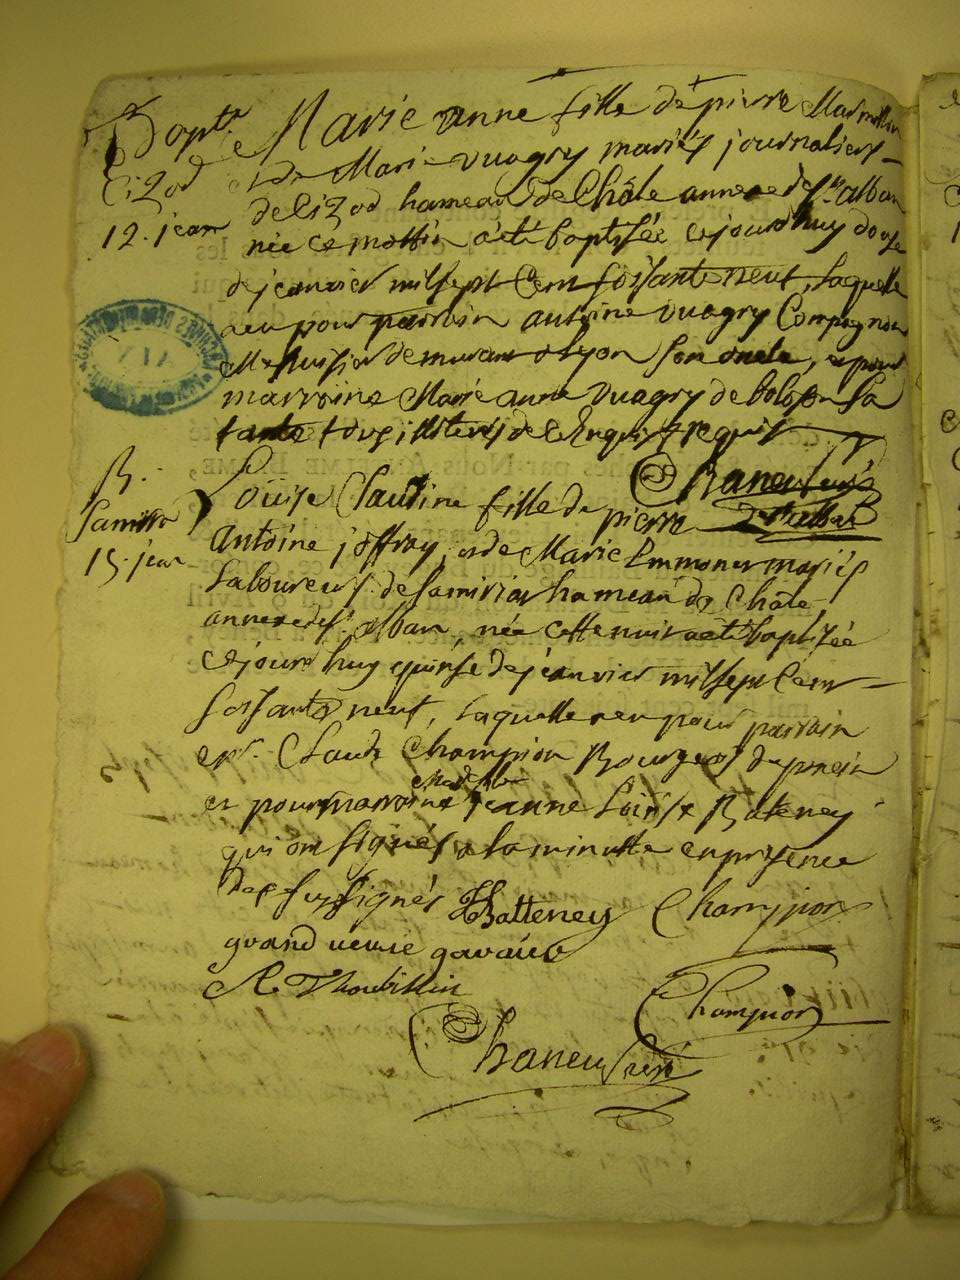 Bapt. Marie anne fille de pierre Marmillon
Cizod et de Marie vuagry mariés journaliers
12. jean de Cizod hameau de Châle annexe de St alban
née ce mattin a été baptisée cejourdhuy douse
de jeanvier mil sept Cent soissante neuf, laquelle
a eu pour parrain antoine vuagry Compagnon
de a Lyon son oncle, et pour
marroine Marie anne vuagry de bolozon sa
tante tous illiterés de ce Enquis et requis
B. Chaneu Curé
Samissia Louise Claudine fille de pierre De St alban
15. jean antoine joffray et de Marie Emmoner mariés
Laboureurs de Samissia hameau de Châle
annexe de St alban, née cette nuit a été baptisée
cejourd'huy quinse de jeanvier mil sept Cent
soissante neuf, laquelle a eu pour parrain
Mr. Claude Champion Bourgeois de poncin
et pour marroine Madelle jeanne Loüise Bateney
qui ont signés a la minutte en présence
des sussignés Batteney Champion
gavand
Champion
Chaneu Curé